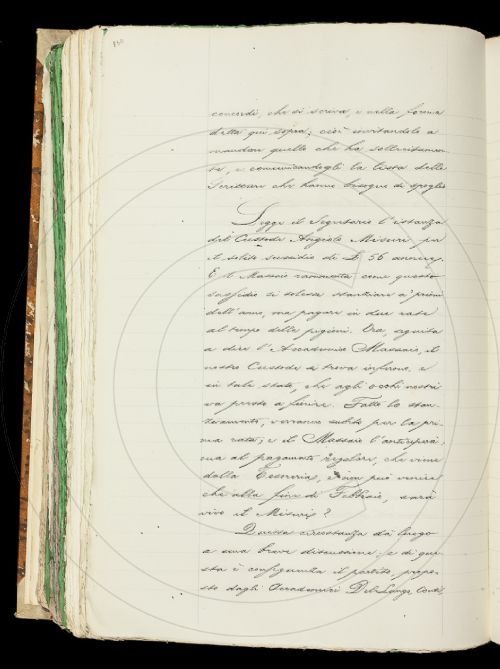 concordi, che si scriva, e nella forma
detta qui sopra; cioè invitandolo a
mandar quello che ha sollecitamen-
te, e comunicandogli la lista delle
scritture che hanno bisogno di spoglio
Legge il Segretario l'istanza
del Custode Angiolo Misuri, per
il solito sussidio di £ 56 annue.
E il Massaio rammenta come questo
sussidio si soleva stanziare a' primi
dell'anno, ma pagare in due rate
al tempo delle pigioni. Ora, seguita
a dire l'Accademico Massaio, il
nostro Custode si trova infermo, e
in tale stato, che agli occhi nostri
va presto a finire. Fatto lo stan-
ziamento, verranno subito per la pri-
ma rata; e il Massaio l'anticiperà
ma al pagamento regolare, che viene
dalla Tesoreria, e non può venire
che alla fine di Febbraio, sarà
vivo il Misuri?
Questa circostanza dà luogo
a una breve discussione; e di que-
sta è conseguenza il partito, propo-
sto dagli Accademici Del Lungo, Conti,